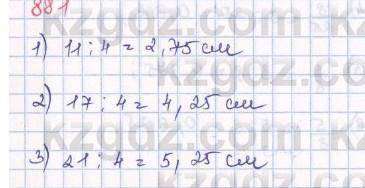 881
1) 11 : 4 = 2,75 см
2) 17 : 4 = 4,25 см
3) 21 : 4 = 5,25 см
kzgaz.com
kzgaz.com
kzgaz.com